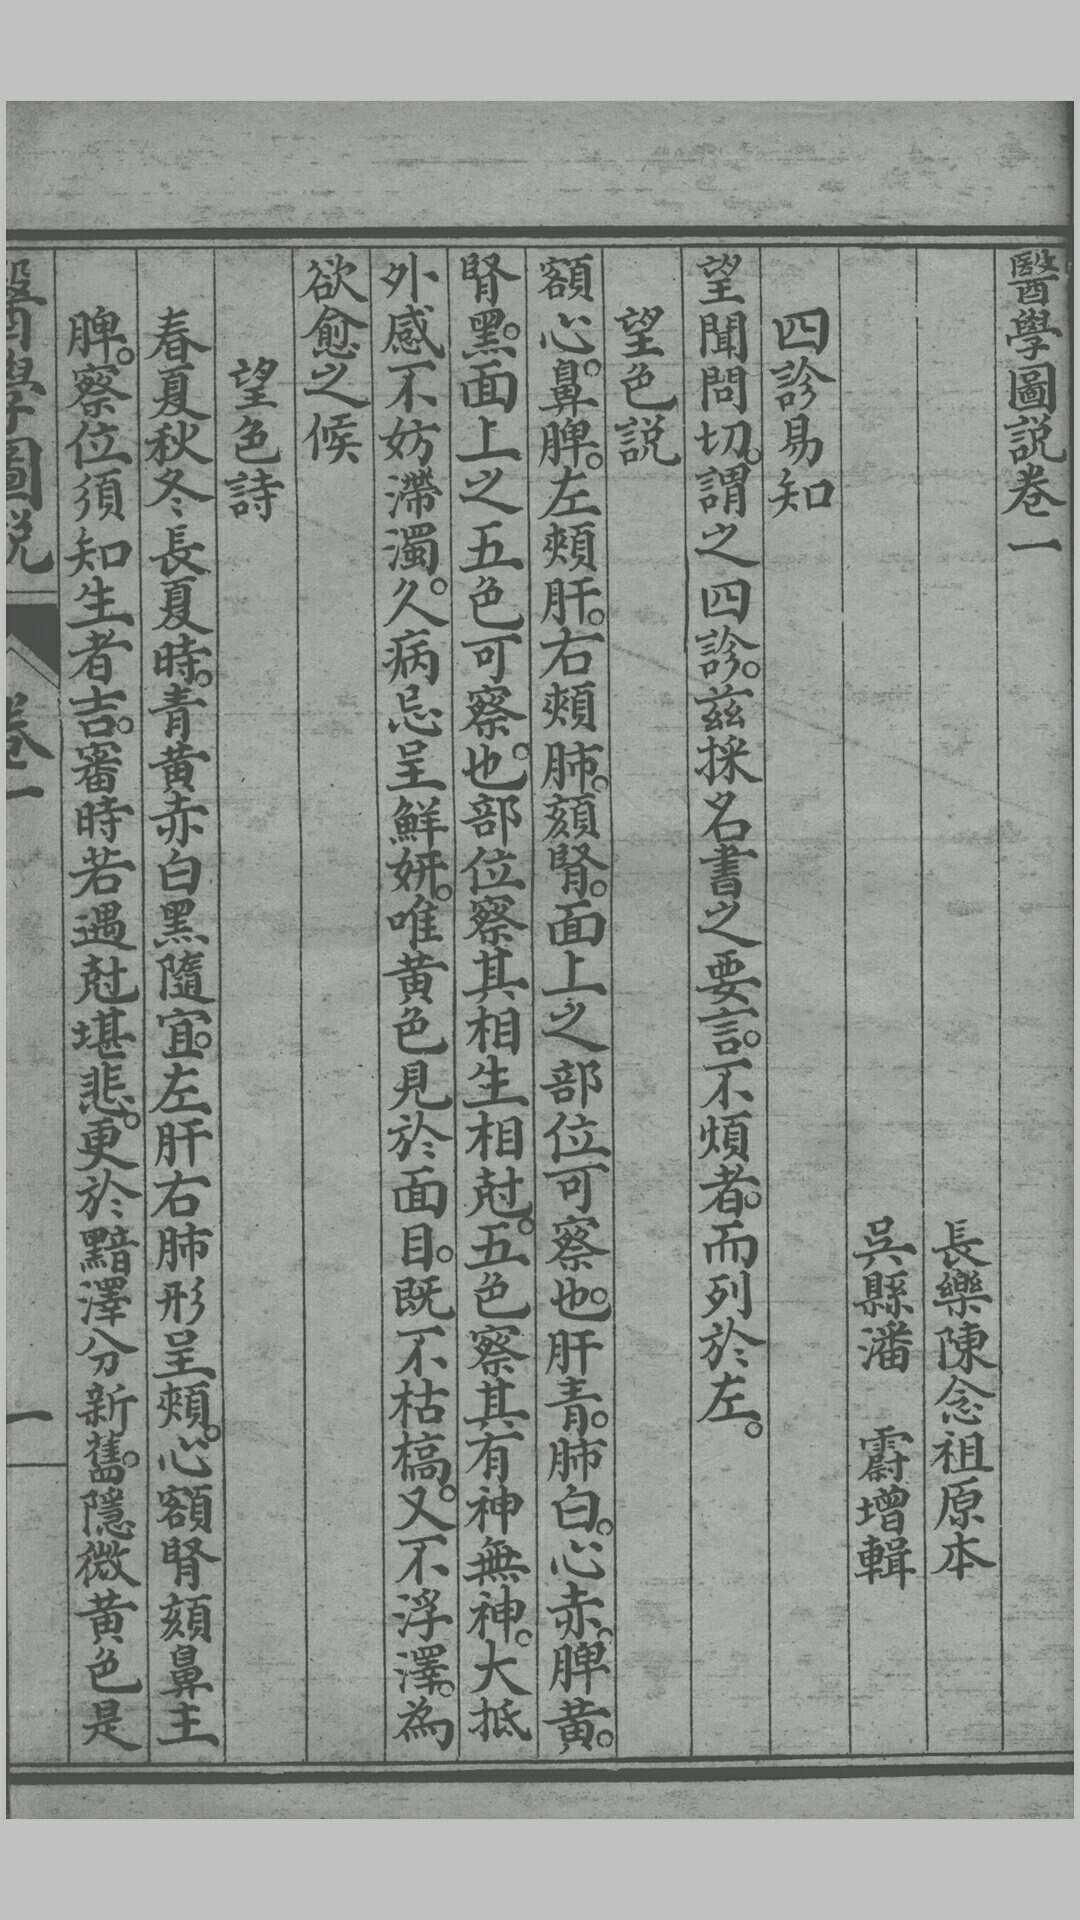 醫學圖説卷一
長樂陳念祖原本
吳縣潘　霨增輯
四診易知
望聞問切。謂之四診。兹採名書之要言。不煩者。而列於左。
望色説
額心。鼻脾。左頰肝。右頰肺。頦腎。面上之部位可察也。肝青。肺白。心赤。脾黄。
腎黑。面上之五色可察也。部位察其相生相尅。五色察其有神無神。大抵
外感不妨滯濁。久病忌呈鮮妍。唯黄色見於面目。既不枯槁。又不浮澤。為
欲愈之候
望色詩
春夏秋冬長夏時。青黄赤白黑隨宜。左肝右肺形呈頰。心額腎頦鼻主
脾。察位須知生者吉。審時若遇尅堪悲。更於黯澤分新舊。隱微黄色是
醫學圖説　卷一　一